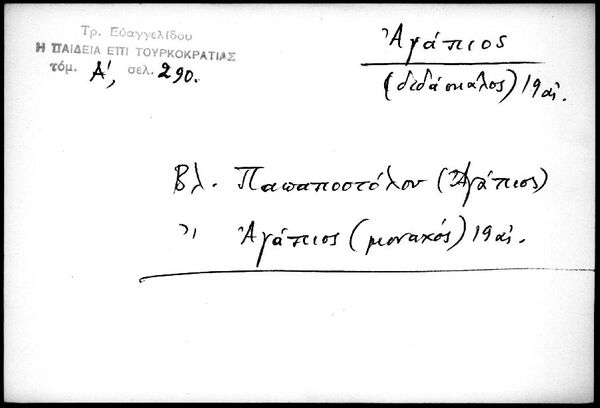 Τρ. Εὐαγγελίδου
Η ΠΑΙΔΕΙΑ ΕΠΙ ΤΟΥΡΚΟΚΡΑΤΙΑΣ
τόμ. Α', σελ. 290.
Ἀγάπιος
(διδάσκαλος) 19 αἰ.
Βλ. Παπαποστόλου (Ἀγάπιος)
" Ἀγάπιος (μοναχός) 19 αἰ.